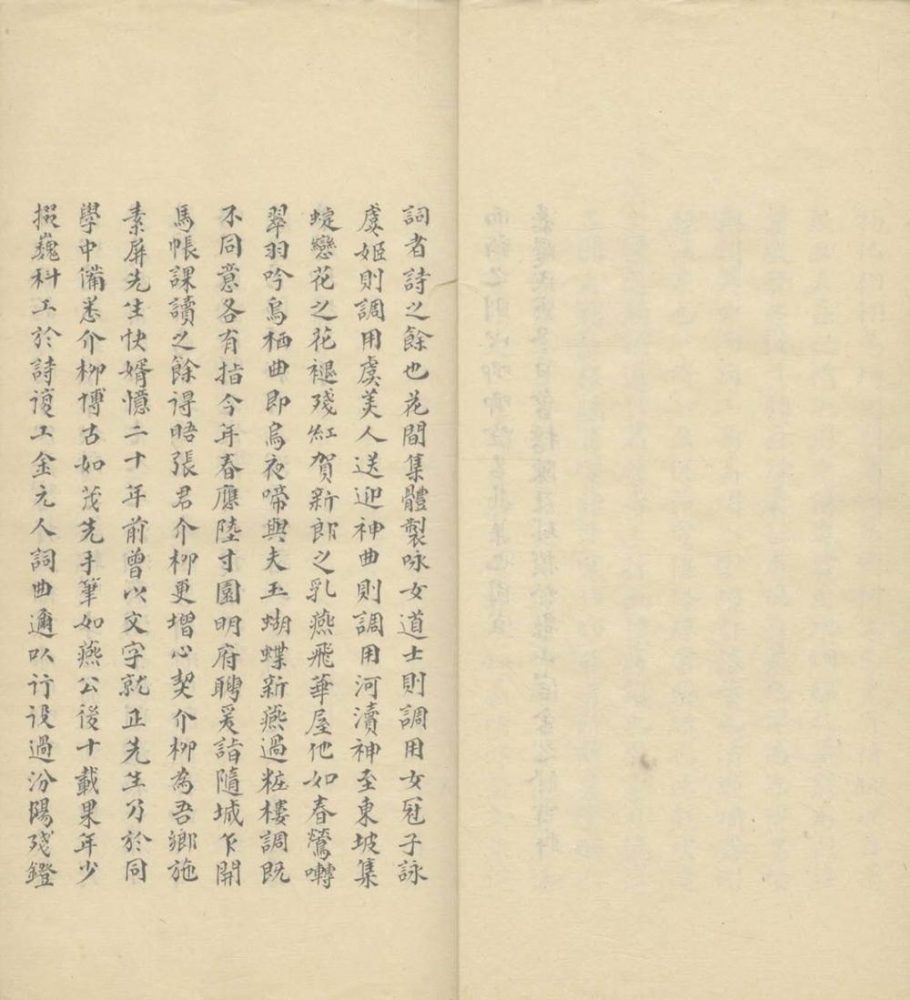 詞者詩之餘也花間集體製咏女道士則調用女冠子詠
虞姬則調用虞美人送迎神曲則調用河瀆神至東坡集
蜨戀花之花褪殘紅賀新郎之乳燕飛華屋他如春鶯囀
翠羽吟烏栖曲即烏夜啼與夫玉蝴蝶新燕過粧樓調既
不同意各有指今年春應陸寸園明府聘爰詣隨城乍開
馬帳課讀之餘得晤張君介柳更增心契介柳為吾鄉施
素屏先生快婿憶二十年前曾以文字就正先生乃於同
學中備悉介柳博古如茂先手筆如燕公後十載果年少
掇巍科工於詩復工金元人詞曲邇以行役過汾陽殘鐙